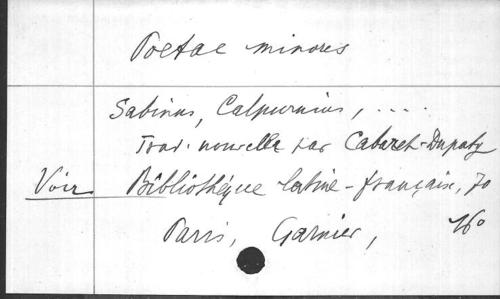 Poetae minores
Sabinus, Calpurnius, ....
Trad. nouvelle par Cabaret-Dupaty
Voir Bibliothéque latine-française, 70
Paris, Garnier, 16°